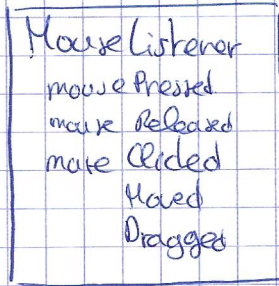 MouseListener
mousePressed
mouse Released
mouse Clicked
Moved
Dragged